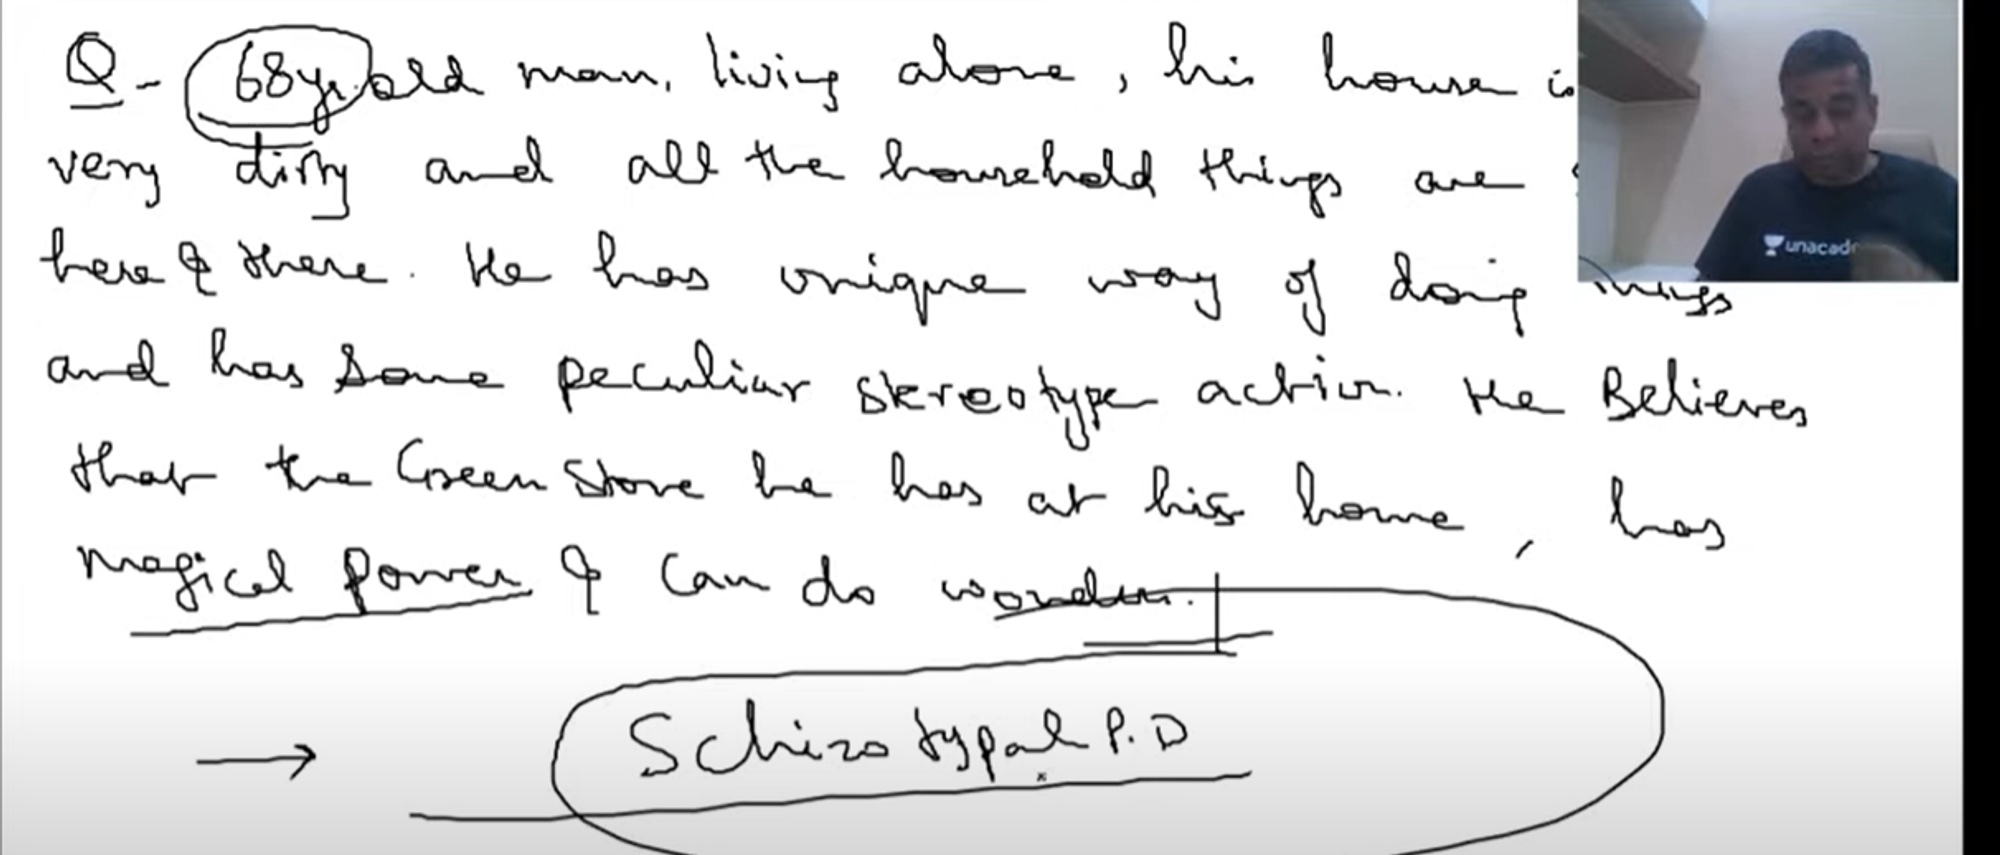 Q - 68yr old man, living alone, his house is
very dirty and all the household things are
here & there. He has unique way of doing things
and has some peculiar stereotype action. He Believes
that the Green Stone he has at his home, has
magical power & can do wonders.
→ Schizotypal P.D
unacade